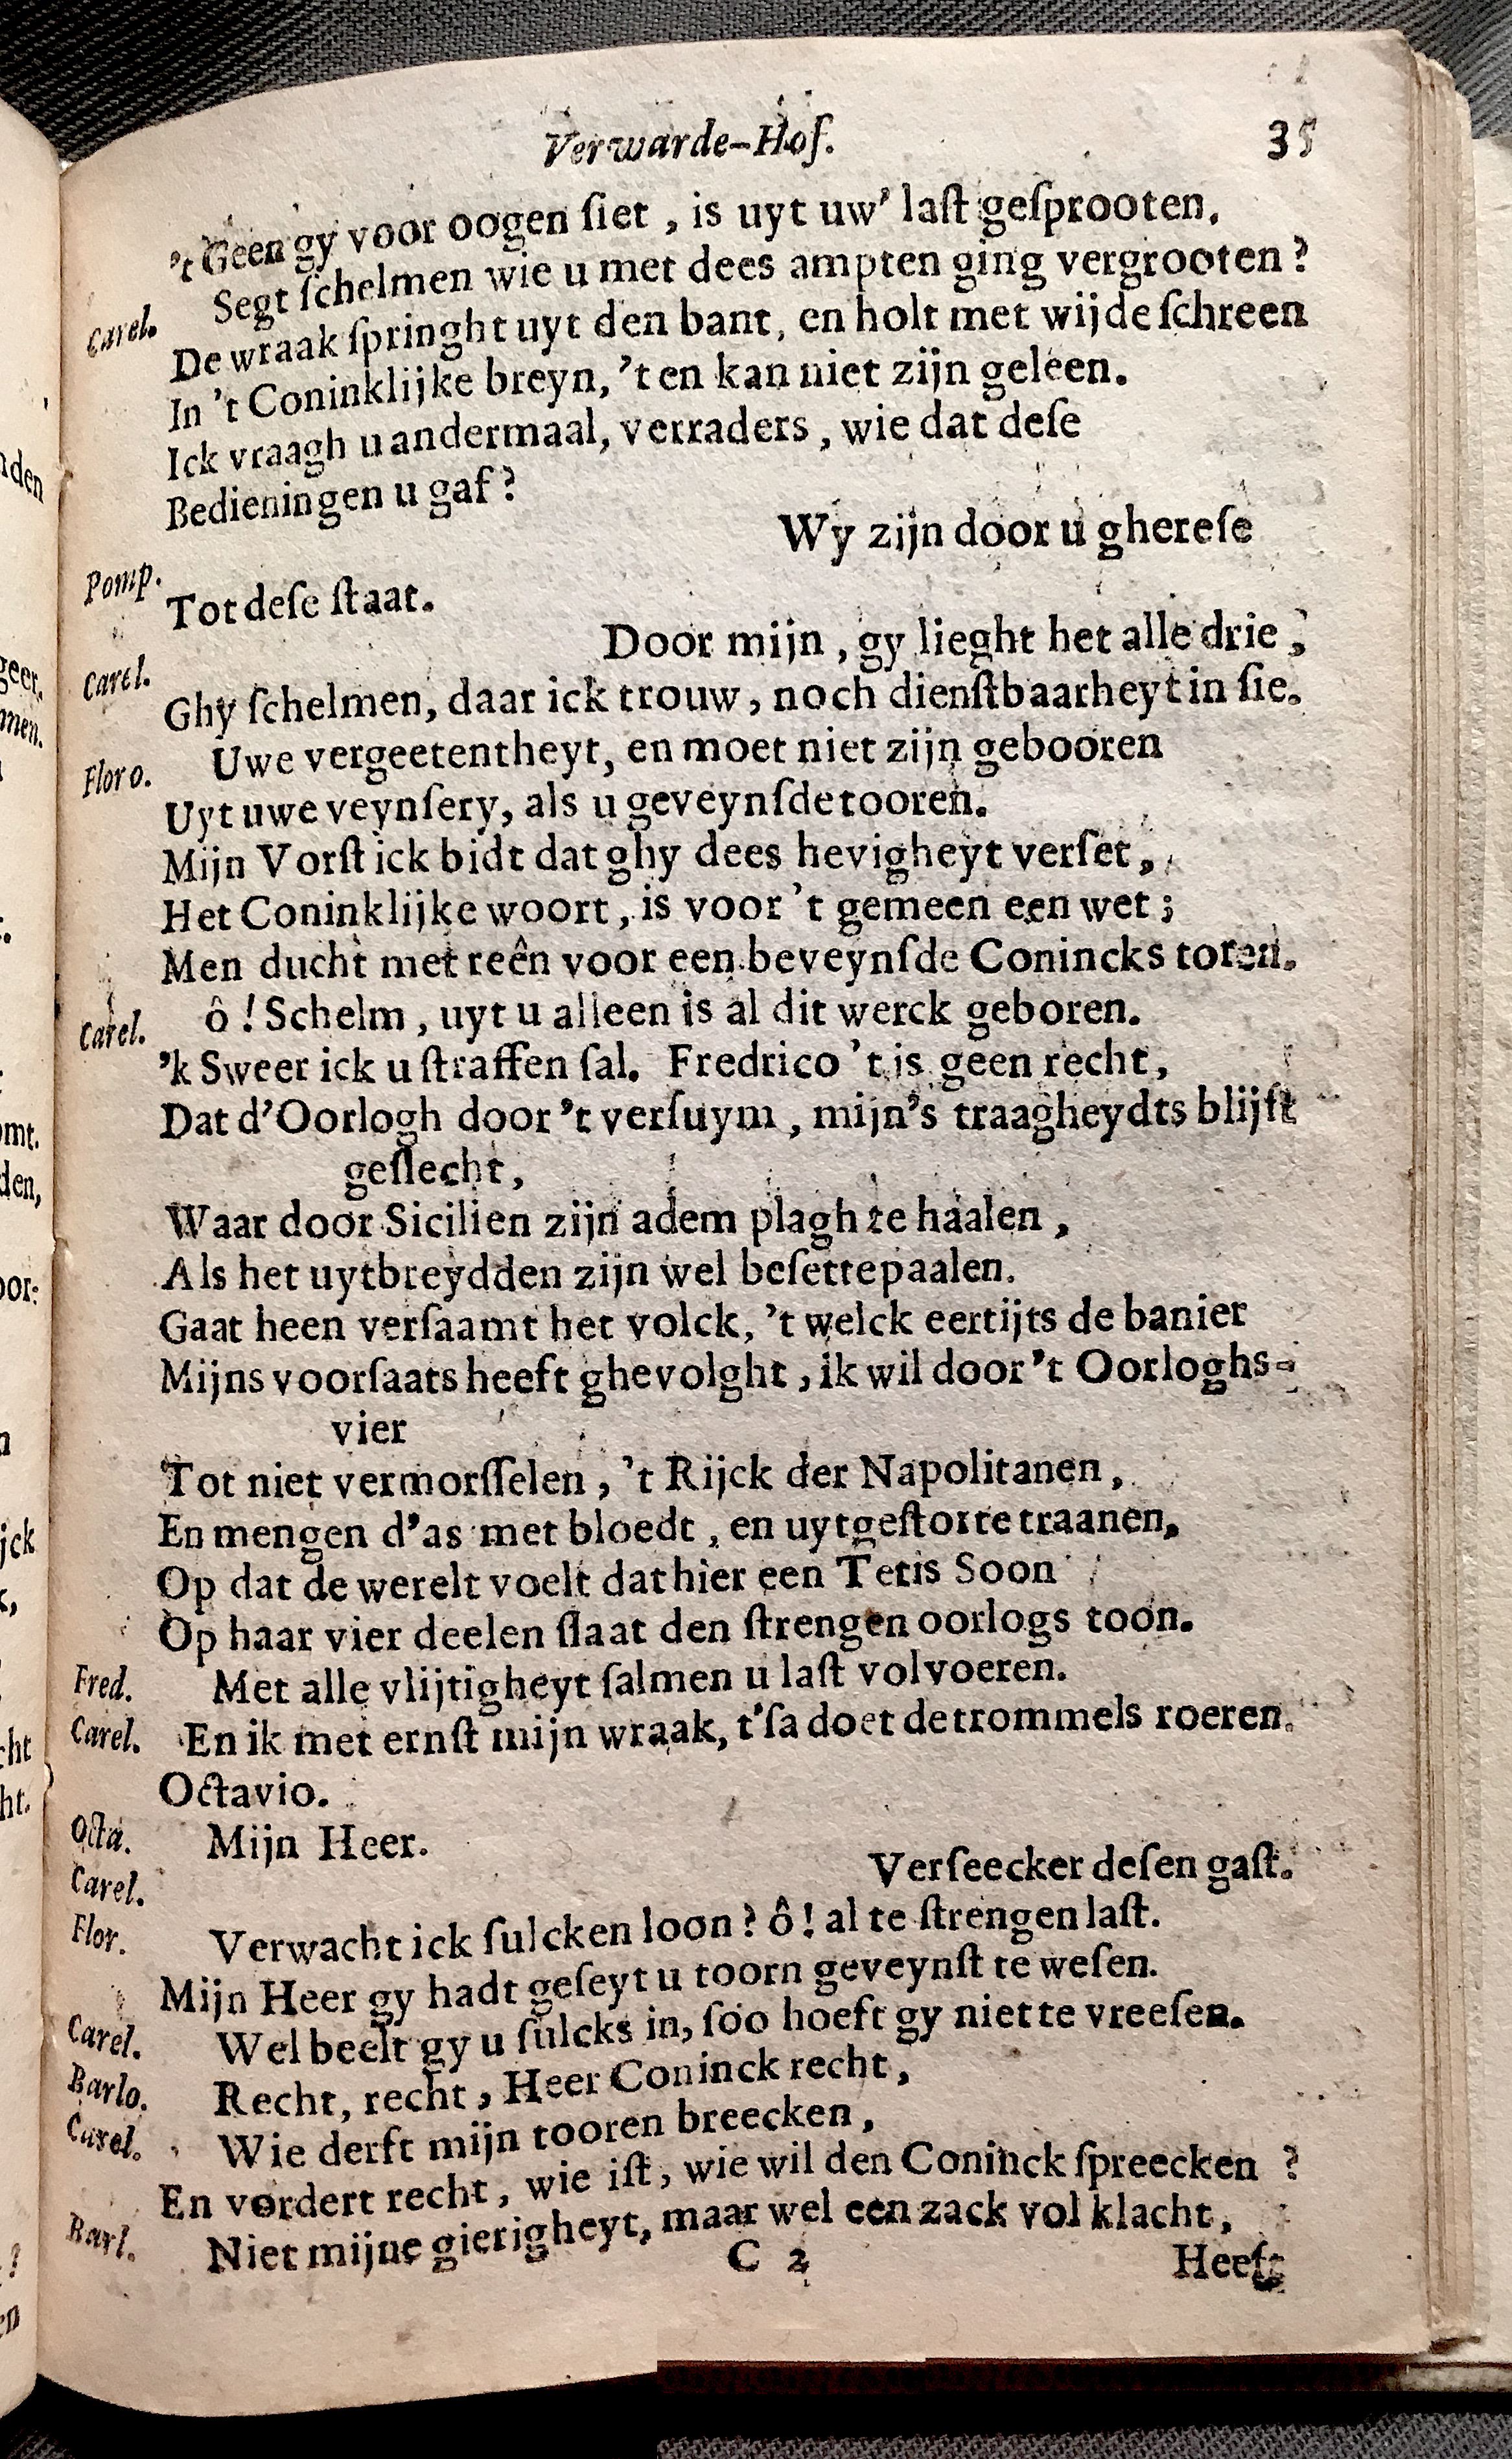 Verwarde-Hof. 35
't Geen gy voor oogen ſiet , is uyt uw' laſt geſprooten.
Carel. Segt ſchelmen wie u met dees ampten ging vergrooten ?
De wraak ſpringht uyt den bant, en holt met wijde ſchreen
In 't Coninklijke breyn, 't en kan niet zijn geleen.
Ick vraagh u andermaal, verraders , wie dat deſe
Bedieningen u gaf ?
Pomp. Wy zijn door u ghereſe
Tot deſe ſtaat.
Carel. Door mijn , gy lieght het alle drie ,
Ghy ſchelmen, daar ick trouw , noch dienſtbaarheyt in ſie.
Floro. Uwe vergeetentheyt, en moet niet zijn gebooren
Uyt uwe veynſery, als u geveynſde tooren.
Mijn Vorſt ick bidt dat ghy dees hevigheyt verſet ,
Het Coninklijke woort , is voor 't gemeen een wet ;
Men ducht met reên voor een beveynſde Conincks toren.
Carel. ô ! Schelm , uyt u alleen is al dit werck geboren.
'k Sweer ick u ſtraffen ſal. Fredrico 't is geen recht,
Dat d'Oorlogh door 't verſuym , mijn's traagheydts blijft
geſlecht,
Waar door Sicilien zijn adem plagh te haalen ,
Als het uytbreydden zijn wel beſette paalen.
Gaat heen verſaamt het volck, 't welck eertijts de banier
Mijns voorſaats heeft ghevolght , ik wil door 't Oorloghs-
vier
Tot niet vermorſſelen , 't Rijck der Napolitanen ,
En mengen d'as met bloedt , en uytgeſtorte traanen,
Op dat de werelt voelt dat hier een Tetis Soon
Op haar vier deelen ſlaat den ſtrengen oorlogs toon.
Fred. Met alle vlijtigheyt ſalmen u laſt volvoeren.
Carel. En ik met ernſt mijn wraak, t'ſa doet de trommels roeren.
Octavio.
Octa. Mijn Heer.
Carel. Verſeecker deſen gaſt.
Flor. Verwacht ick ſulcken loon ? ô ! al te ſtrengen laſt.
Mijn Heer gy hadt geſeyt u toorn geveynſt te weſen.
Carel. Wel beelt gy u ſulcks in, ſoo hoeft gy niet te vreeſen.
Barlo. Recht, recht , Heer Coninck recht ,
Carel. Wie derft mijn tooren breecken ,
En vordert recht , wie iſt , wie wil den Coninck ſpreecken ?
Barl. Niet mijne gierigheyt, maar wel een zack vol klacht,
C 2 Heeft